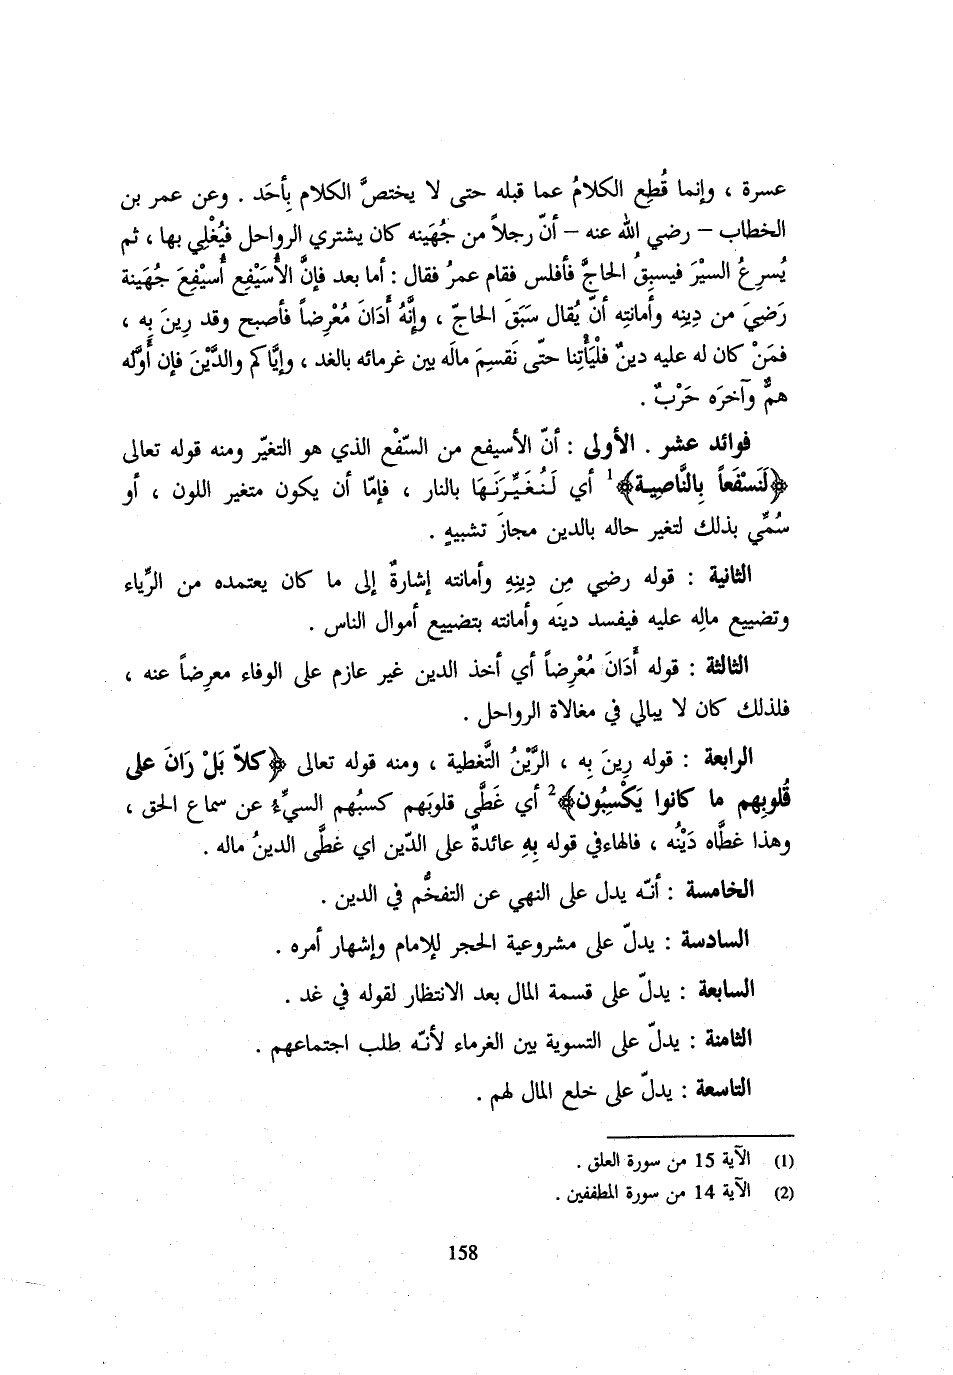 عسرة ، وإنما قُطِع الكلامُ عما قبله حتى لا يختصَّ الكلام بِأحَد . وعن عمر بن
الخطاب – رضي الله عنه – أنّ رجلاً من جُهَينه كان يشتري الرواحل فيُغْلِي بها ، ثم
يُسرِعُ السيْرَ فيسبِقُ الحاجَّ فأفلس فقام عمرُ فقال : أما بعد فإنَّ الأُسَيْفِع أُسيْفِعَ جُهَينة
رَضِيَ من دِينِه وأمانتِه أنّ يُقال سَبَقَ الحاجّ ، وإنَّهُ أَدَانَ مُعْرِضاً فأصبح وقد رِينَ بِه ،
فمَنْ كان له عليه دينٌ فلْيَأْتِنا حتّى نَقسِمَ مالَه بين غرمائه بالغد ، وإيَّاكم والدَّيْنَ فإن أَوَّله
همٌّ وآخرَه حَرْبٌ .
فوائد عشر . الأولى : أنّ الأسيفع من السّفْع الذي هو التغيّر ومنه قوله تعالى
﴿لَنَسْفَعاً بِالنَّاصِيـة﴾1 أي لَـنُـغَـيِّـرَنَـهَا بالنار ، فإمّا أن يكون متغير اللون ، أو
سُمِّي بذلك لتغير حاله بالدين مجازَ تشبيهٍ .
الثانية : قوله رضِي مِن دِينِهِ وأمانته إشارةٌ إلى ما كان يعتمده من الرِّياء
وتضييع مالِه عليه فيفسد دينَه وأمانته بتضييع أموال الناس .
الثالثة : قوله أَدَانَ مُعْرِضاً أي أخذ الدين غير عازم على الوفاء معرِضاً عنه ،
فلذلك كان لا يبالي في مغالاة الرواحل .
الرابعة : قوله رِينَ بِه ، الرَّيْنُ التَّغطية ، ومنه قوله تعالى ﴿كلاّ بَلْ رَانَ على
قُلوبِهم ما كانوا يَكْسِبُون﴾2 أي غَطَّى قلوبَهم كسبُهم السيِّءُ عن سماع الحق ،
وهذا غطَّاه دَيْنُه ، فالهاءفي قوله بِهِ عائدةٌ على الدّين اي غطَّى الدينُ ماله .
الخامسة : أنّـه يدل على النهي عن التفخُّم في الدين .
السادسة : يدلّ على مشروعية الحجر للإمام وإشهار أمره .
السابعة : يدلّ على قسمة المال بعد الانتظار لقوله في غد .
الثامنة : يدلّ على التسوية بين الغرماء لأنّـه طلب اجتماعهم .
التاسعة : يدلّ على خلع المال لهم .
(1) الآية 15 من سورة العلق .
(2) الآية 14 من سورة المطففين .
158